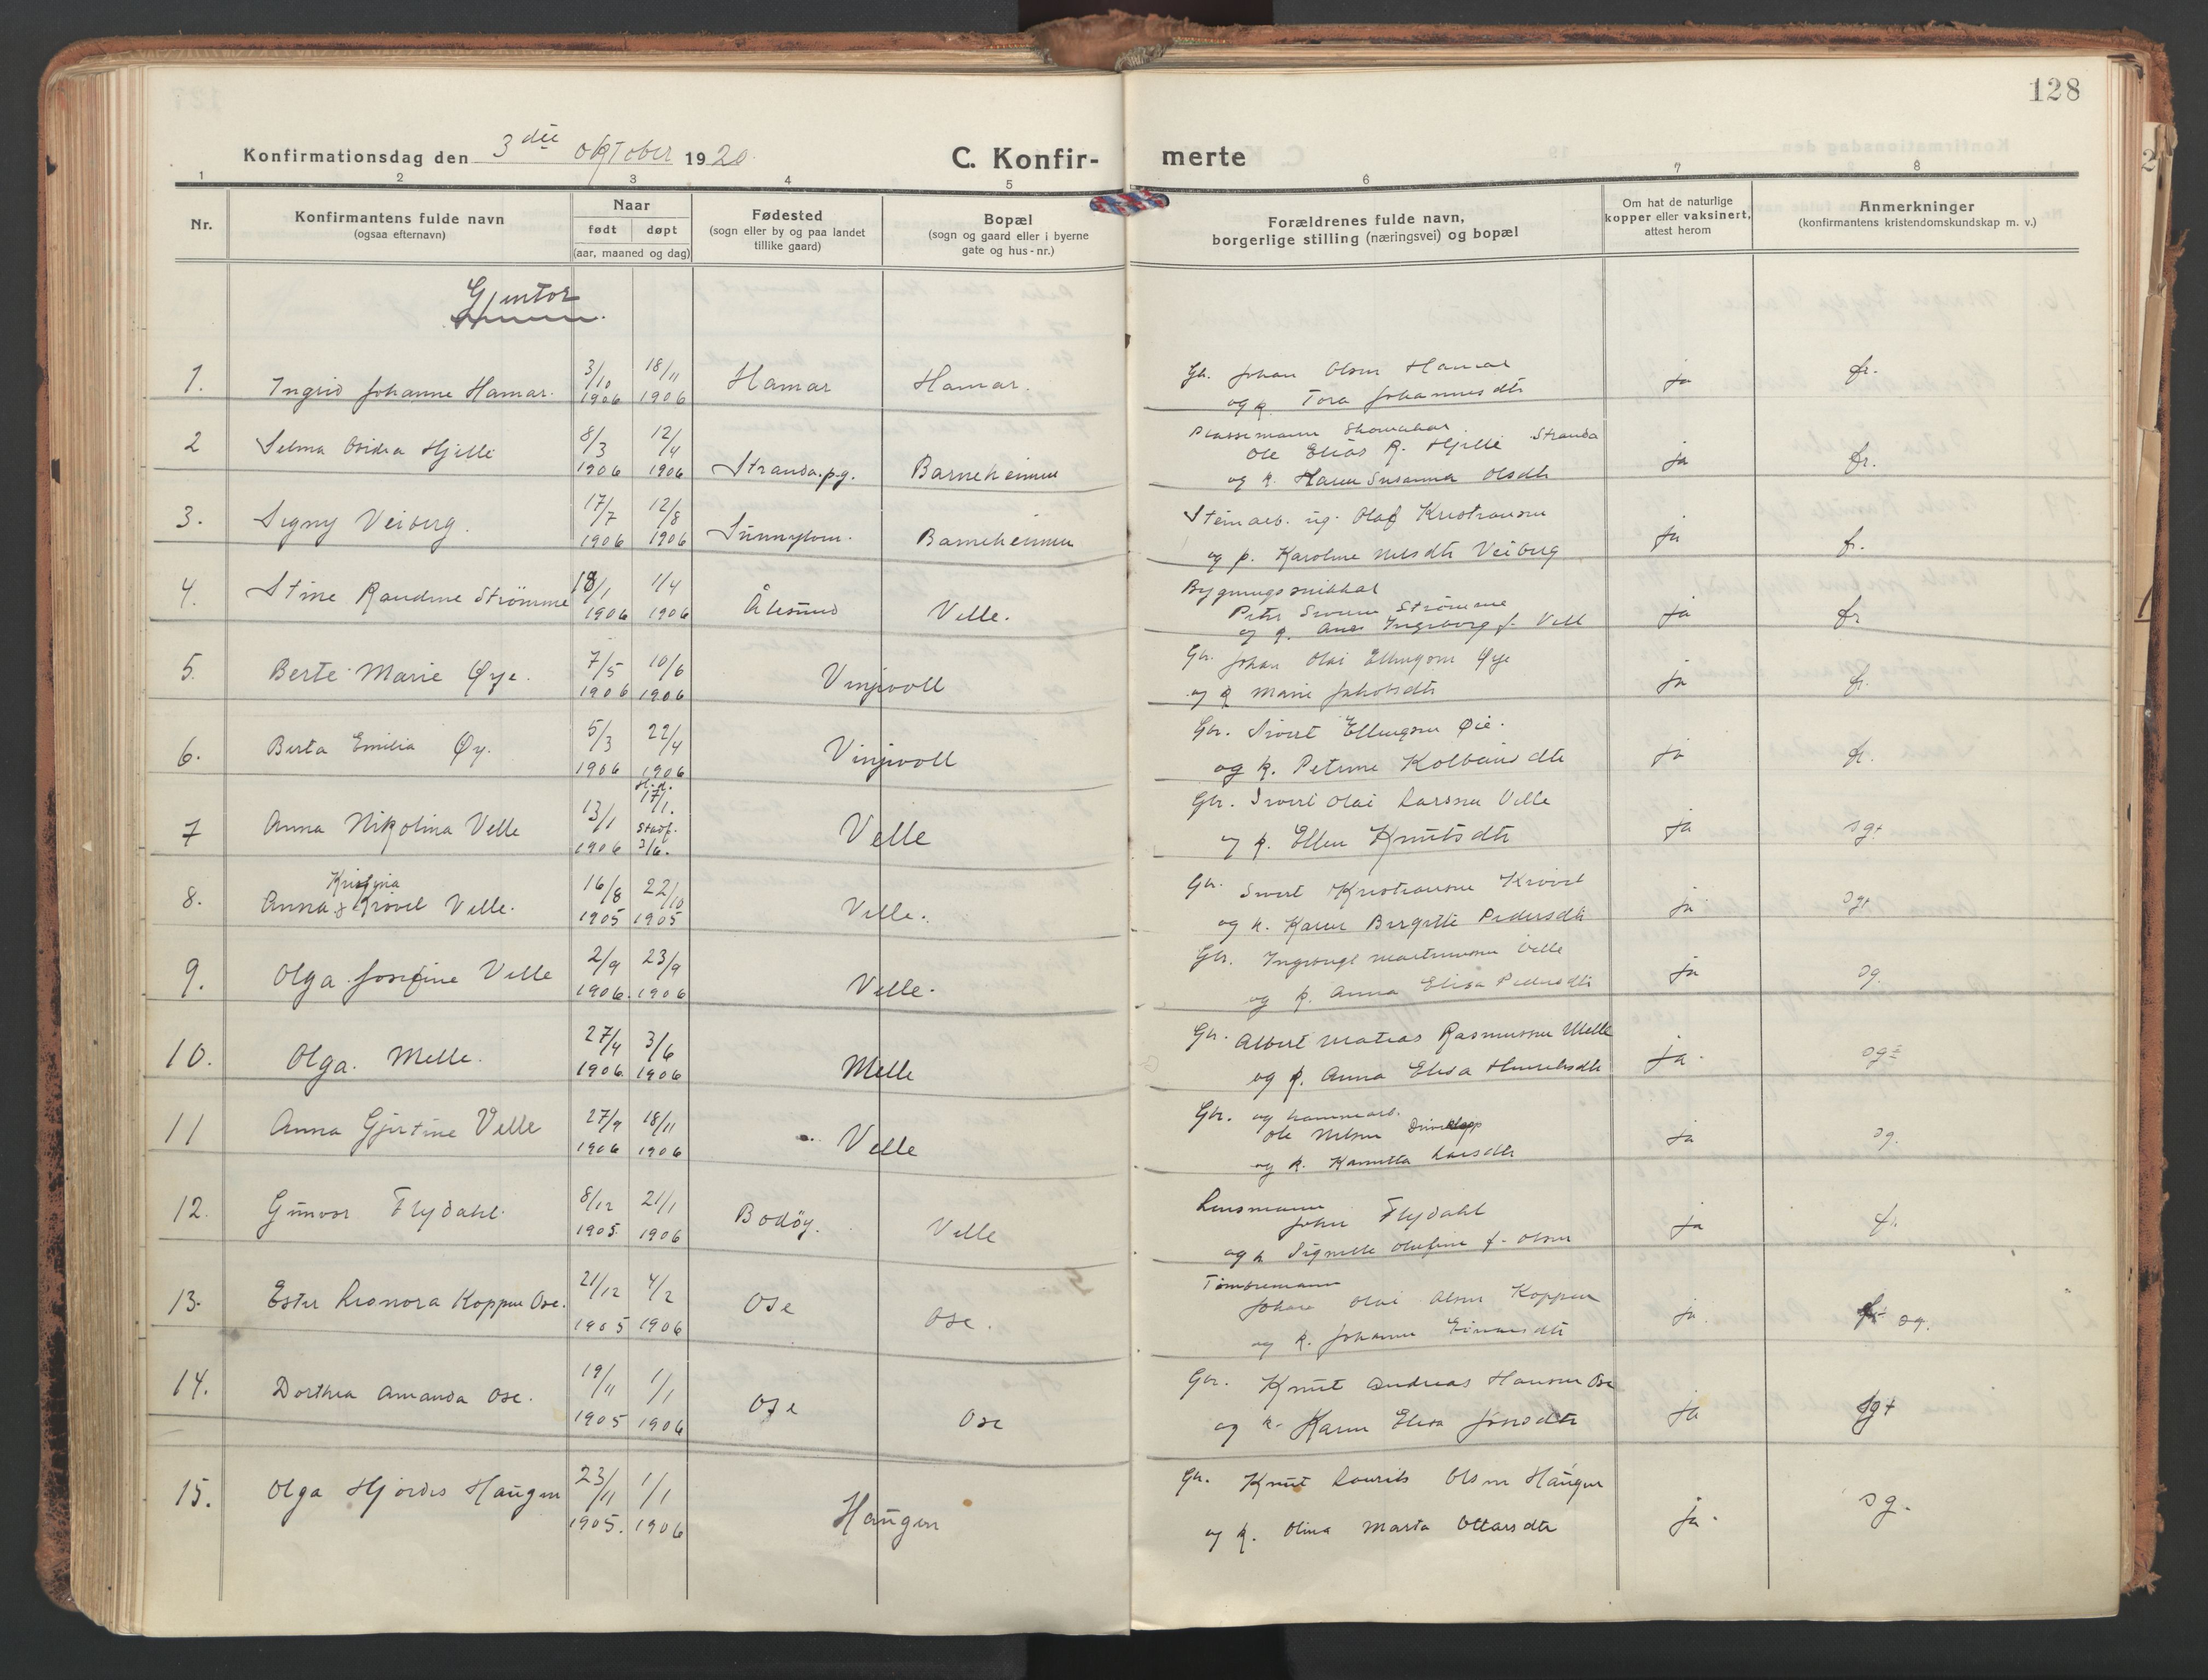 128
Konfirmationsdag den 3 die oktober 1920
C. Konfir- merte
1 2 3 4 5 6 7 8
Nr.
Konfirmantens fulde navn
(ogsaa efternavn)
Naar
født døpt
(aar, maaned og dag)
Fødested
(sogn eller by og paa landet
tillike gaard)
Bopæl
(sogn og gaard eller i byerne
gate og hus-nr.)
Forældrenes fulde navn,
borgerlige stilling (næringsvei) og bopæl
Om hat de naturlige
kopper eller vaksinert,
attest herom
Anmerkninger
(konfirmantens kristendomskundskap m. v.)
Gjentor
1. Ingrid Johanne Hamar. 3/10 1906 18/11 1906 Hamar Hamar. Gbr. Johan Olsen Hamar
og k. Tora Johannesdtr ja fr.
2 Selma Hjelle 8/3 1906 12/4 1906 Stranda pg. Barneheimen
Ole Elias R. Hjelle Stranda
og k. Karen Susanna Olsdtr ja fr.
3. Signy Veiberg. 17/7 1906 12/8 1906 Sunnylven. Barneheimen Steinarb. ug. Olaf Kristiansen
og p. Karoline Nilsdtr Veiberg ja fr.
4. Stine Raudine Strömme 18/1 1906 1/4 1906 Ålesund Velle. Bygningssnikkar
Peter Strömme
og k. Ane Ingeborg f. Vell ja fr
5. Berte Marie Øye. 7/5 1906 10/6 1906 Vinjevoll Gbr. Johan Olai Ellingsen Øye
og k Marie Jakobsdtr ja fr.
6. Berta Emilia Øy. 5/3 1906 22/4 1906 Vinjevoll Gbr. Sivert Ellingsen Øie.
og k. Petrine Kolbeinsdtr ja fr.
7 Anna Nikolina Velle 13/1 1906 H.d. 17/1. Stadf. 3/6. Velle Gbr. Sivert Olai Larsen Velle
og k. Ellen Knutsdtr ja sg+
8. Anna Kristina Krøvel Velle. 16/8 1905 22/10 1905 Velle. Gbr. Sivert Kristiansen
og k. Karen Birgitte Pedersdtr ja sg+
9. Olga Josefine Velle 2/9 1906. 23/9 1906 Velle. Gbr. Ingebrigt Martinusen Velle
og k. Anna Elisa Pedersdtr ja sg.
10. Olga. Melle. 27/4 1906. 3/6 1906 Melle Gbr. Albert Matias Rasmussen Melle
og k. Anna Elisa ja. sg÷
11 Anna Gjertine Velle 27/9 1906 18/11 1906 Velle Gbr. og
Ole Nilsen
og k. Larsdtr ja sg.
12. Gunvor Flydahl. 8/12 1905. 21/1 1906 Bodöy. Velle Lensmann
John Flydahl
og k Olufine f. Olsen ja fr.
13. Ester Leonora Koppen Ose. 21/12 1905 4/2 1906 Ose Ose. Tömmermann
Johan Olai Olsen Koppen
og k. Johanne Einarsdtr ja. sg.
14. Dorthea Amanda Ose. 19/11 1905 1/1 1906 Ose Ose Gbr. Knut Andreas Hansen Ose
og k. Karen Elisa Jonsdtr ja sg+
15. Olga Hjördis Haugen 23/11 1905. 1/1 1906 Haugen Gbr. Knut Laurits Olsen Haugen
og k. Olina Marta Ottarsdtr ja. sg.